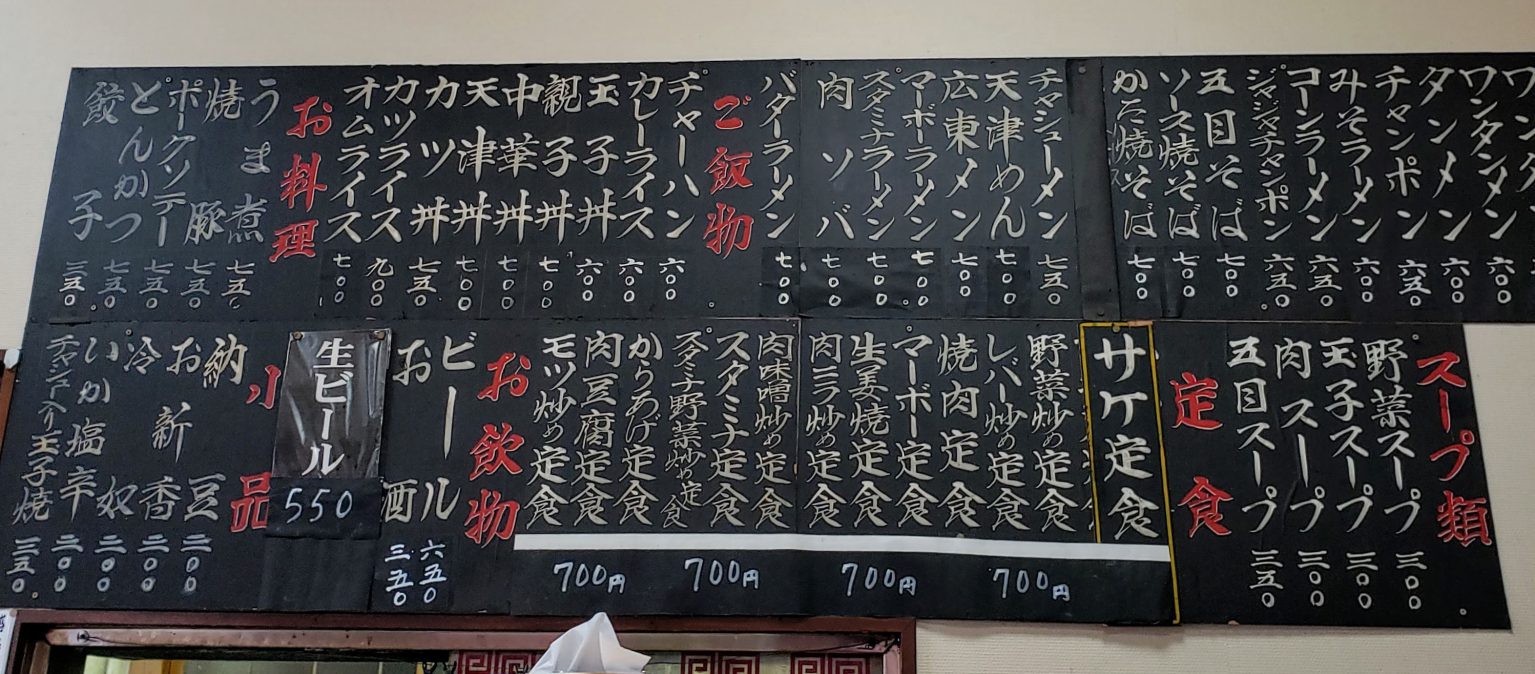 ワンタンメン
六〇〇
タンメン
六〇〇
チャンポン
六五〇
みそラーメン
六〇〇
コーンラーメン
六五〇
ジャジャチャンポン
六五〇
五目そば
七〇〇
ソース焼そば
七〇〇
かた焼そば
七〇〇
チャシューメン
七五〇
天津めん
七〇〇
広東メン
七〇〇
マーボーラーメン
七〇〇
スタミナラーメン
七〇〇
肉ソバ
七〇〇
バターラーメン
七〇〇
ご飯物
チャーハン
六〇〇
カレーライス
六〇〇
玉子丼
六〇〇
親子丼
七〇〇
中華丼
七〇〇
天津丼
七〇〇
カツ丼
七五〇
カツライス
九〇〇
オムライス
七〇〇
お料理
うま煮
七五〇
焼豚
七五〇
ポークソテー
七五〇
とんかつ
七五〇
餃子
三五〇
スープ類
野菜スープ
三〇〇
玉子スープ
三〇〇
肉スープ
三〇〇
五目スープ
三五〇
定食
サケ定食
野菜炒め定食
レバー炒め定食
焼肉定食
マーボー定食
生姜焼定食
肉ニラ炒め定食
肉味噌炒め定食
スタミナ定食
スタミナ野菜炒め定食
からあげ定食
肉豆腐定食
モツ炒め定食
700円
700円
700円
700円
お飲物
ビール
六五〇
お酒
三五〇
生ビール
550
小品
納豆
二〇〇
お新香
二〇〇
冷奴
二〇〇
いか塩辛
二〇〇
チャシュー入り玉子焼
三五〇